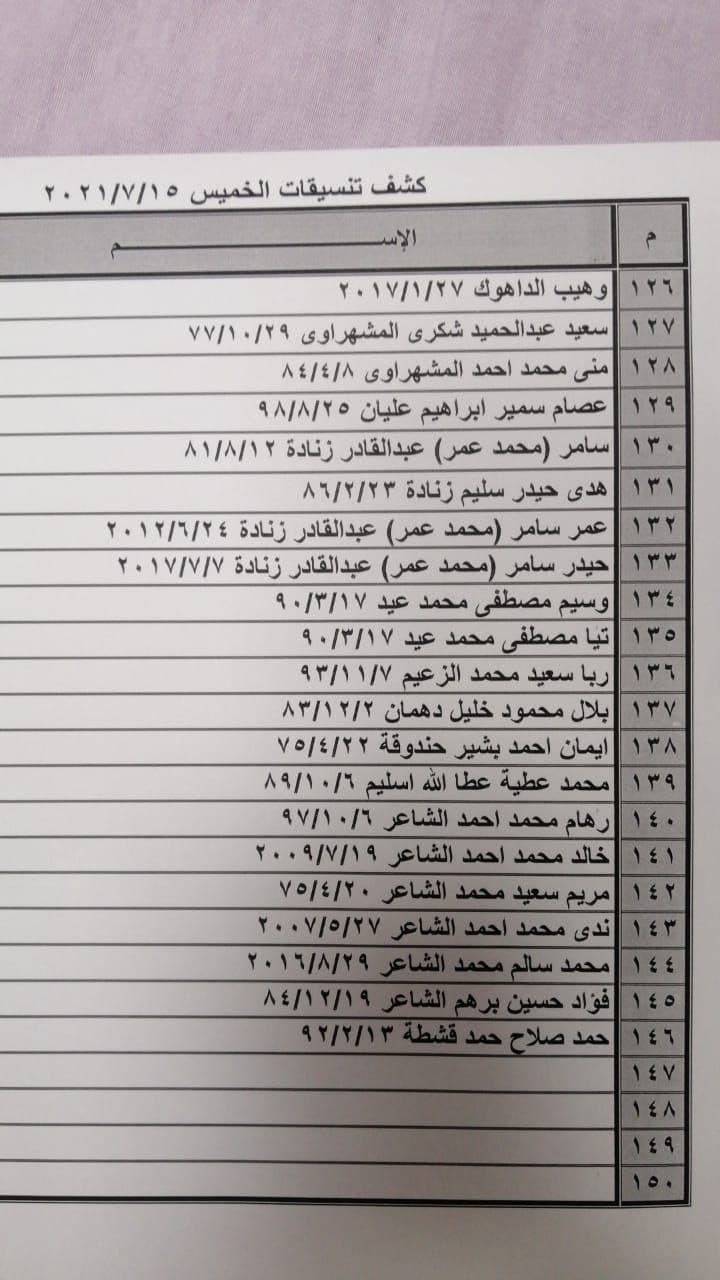 كشف تنسيقات الخميس ٢٠٢١/٧/١٥
م الإســـــــــم
١٢٦ وهيب الداهوك ٢٠١٧/١/٢٧
١٢٧ سعيد عبدالحميد شكرى المشهراوى ٧٧/١٠/٢٩
١٢٨ منى محمد احمد المشهراوى ٨٤/٤/٨
١٢٩ عصام سمير ابراهيم عليان ٩٨/٨/٢٥
١٣٠ سامر (محمد عمر) عبدالقادر زنادة ٨١/٨/١٢
١٣١ هدى حيدر سليم زنادة ٨٦/٢/٢٣
١٣٢ عمر سامر (محمد عمر) عبدالقادر زنادة ٢٠١٢/٦/٢٤
١٣٣ حيدر سامر (محمد عمر) عبدالقادر زنادة ٢٠١٧/٧/٧
١٣٤ وسيم مصطفى محمد عيد ٩٠/٣/١٧
١٣٥ تيا مصطفى محمد عيد ٩٠/٣/١٧
١٣٦ ربا سعيد محمد الزعيم ٩٣/١١/٧
١٣٧ بلال محمود خليل دهمان ٨٣/١٢/٢
١٣٨ ايمان احمد بشير حندوقة ٧٥/٤/٢٢
١٣٩ محمد عطية عطا الله اسليم ٨٩/١٠/٦
١٤٠ رهام محمد احمد الشاعر ٩٧/١٠/٦
١٤١ خالد محمد احمد الشاعر ٢٠٠٩/٧/١٩
١٤٢ مريم سعيد محمد الشاعر ٧٥/٤/٢٠
١٤٣ ندى محمد احمد الشاعر ٢٠٠٧/٥/٢٧
١٤٤ محمد سالم محمد الشاعر ٢٠١٦/٨/٢٩
١٤٥ فؤاد حسين برهم الشاعر ٨٤/١٢/١٩
١٤٦ حمد صلاح حمد قشطة ٩٢/٢/١٣
١٤٧
١٤٨
١٤٩
١٥٠